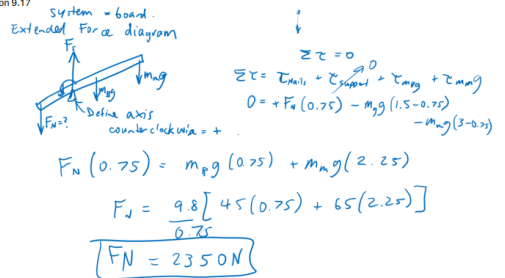 on 9.17
System = board.
Extended Force diagram
Fs
mmg
mBg
FN=?
Define axis
counterclockwise = +
Στ = 0
Στ = τNails + τsupport + τmBg + τmmg
0
0 = + FN (0.75) - mBg (1.5-0.75)
- mmg (3-0.75)
FN (0.75) = mBg (0.75) + mmg (2.25)
FN = 9.8 [ 45 (0.75) + 65 (2.25) ]
0.75
FN = 2350N